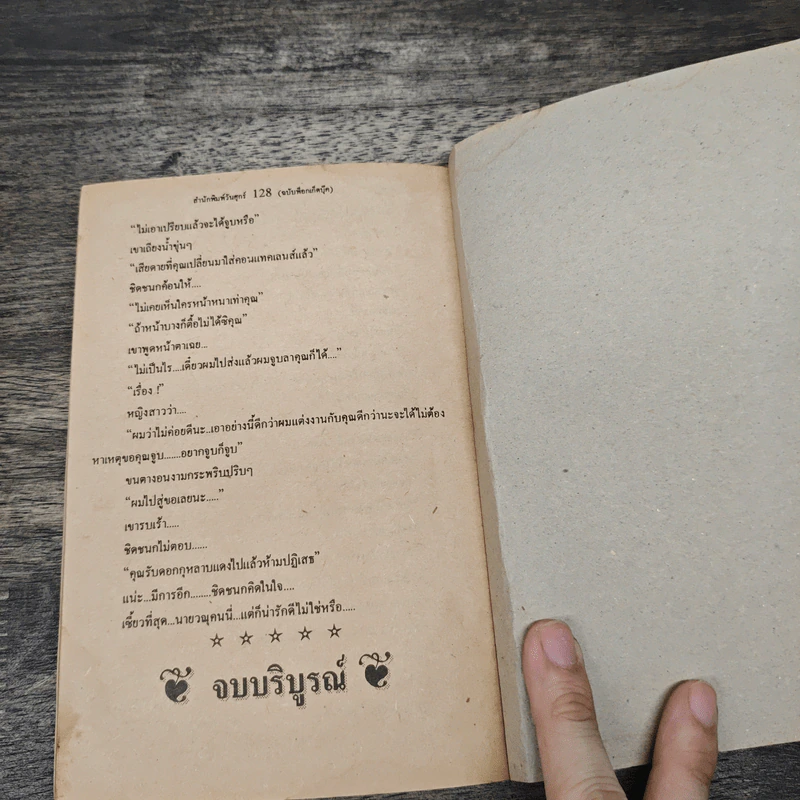 สำนักพิมพ์วันศุกร์ 128 (ฉบับพ็อกเก็ตบุ๊ค)
“ไม่เอาเปรียบแล้วจะได้จูบหรือ”
เขาเถียงน้ำขุ่นๆ
“เสียดายที่คุณเปลี่ยนมาใส่คอนแทคเลนส์แล้ว”
ชิดชนกค้อนให้....
“ไม่เคยเห็นใครหน้าหนาเท่าคุณ”
“ถ้าหน้าบางก็ตื๊อไม่ได้ซิคุณ”
เขาพูดหน้าตาเฉย...
“ไม่เป็นไร....เดี๋ยวผมไปส่งแล้วผมจูบลาคุณก็ได้....”
“เรื่อง !”
หญิงสาวว่า....
“ผมว่าไม่ค่อยดีนะ..เอาอย่างนี้ดีกว่าผมแต่งงานกับคุณดีกว่านะจะได้ไม่ต้อง
หาเหตุขอคุณจูบ.......อยากจูบก็จูบ”
ขนตางอนงามกระพริบปริบๆ
“ผมไปสู่ขอเลยนะ.....”
เขารบเร้า.....
ชิดชนกไม่ตอบ......
“คุณรับดอกกุหลาบแดงไปแล้วห้ามปฏิเสธ”
แน่ะ...มีการอีก........ชิดชนกคิดในใจ....
เชี่ยวที่สุด...นายวณุคนนี่...แต่ก็น่ารักดีไม่ใช่หรือ.....
☆ ☆ ☆ ☆ ☆
จบบริบูรณ์